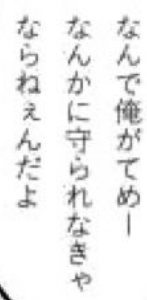 なんで俺がてめー
なんかに守られなきゃ
ならねぇんだよ